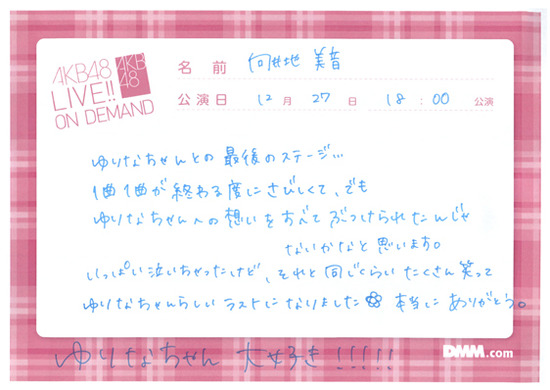 AKB48
LIVE!!
ON DEMAND
AKB
48
名 前 向井地 美音
公演日 12 月 27 日 18:00 公演
ゆりなちゃんとの 最後のステージ...
1曲1曲が終わる度にさびしくて、でも
ゆりなちゃんへの想いをすべてぶつけられたんじゃ
ないかなと思います。
いっぱい泣いちゃったけど、それと同じくらいたくさん笑って
ゆりなちゃんらしいラストになりました 本当にありがとう。
ゆりなちゃん 大好き!!!!!
DMM.com